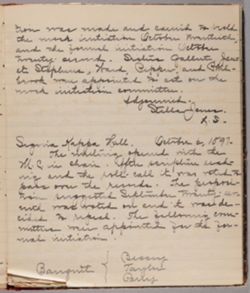 tion was made and carried to hold
the mock initiation October twentieth,
and the formal initiation October
twenty second. Sisters Gallert,
Stephens, Ward, Pepper, and
brook were appointed to act on the
mock initiation committee.
Adjourned.
Stella Jones.
R. S.
Sigma Kappa Hall. October 6, 1897.
The meeting opened with the
W. C. in chair. After scripture read-
ing and the roll call it was voted to
pass over the records. The
from
was voted on and it was de-
cided to The following com-
mittees were appointed for the for-
mal initiation:
Banquet
Bessey
Taylor